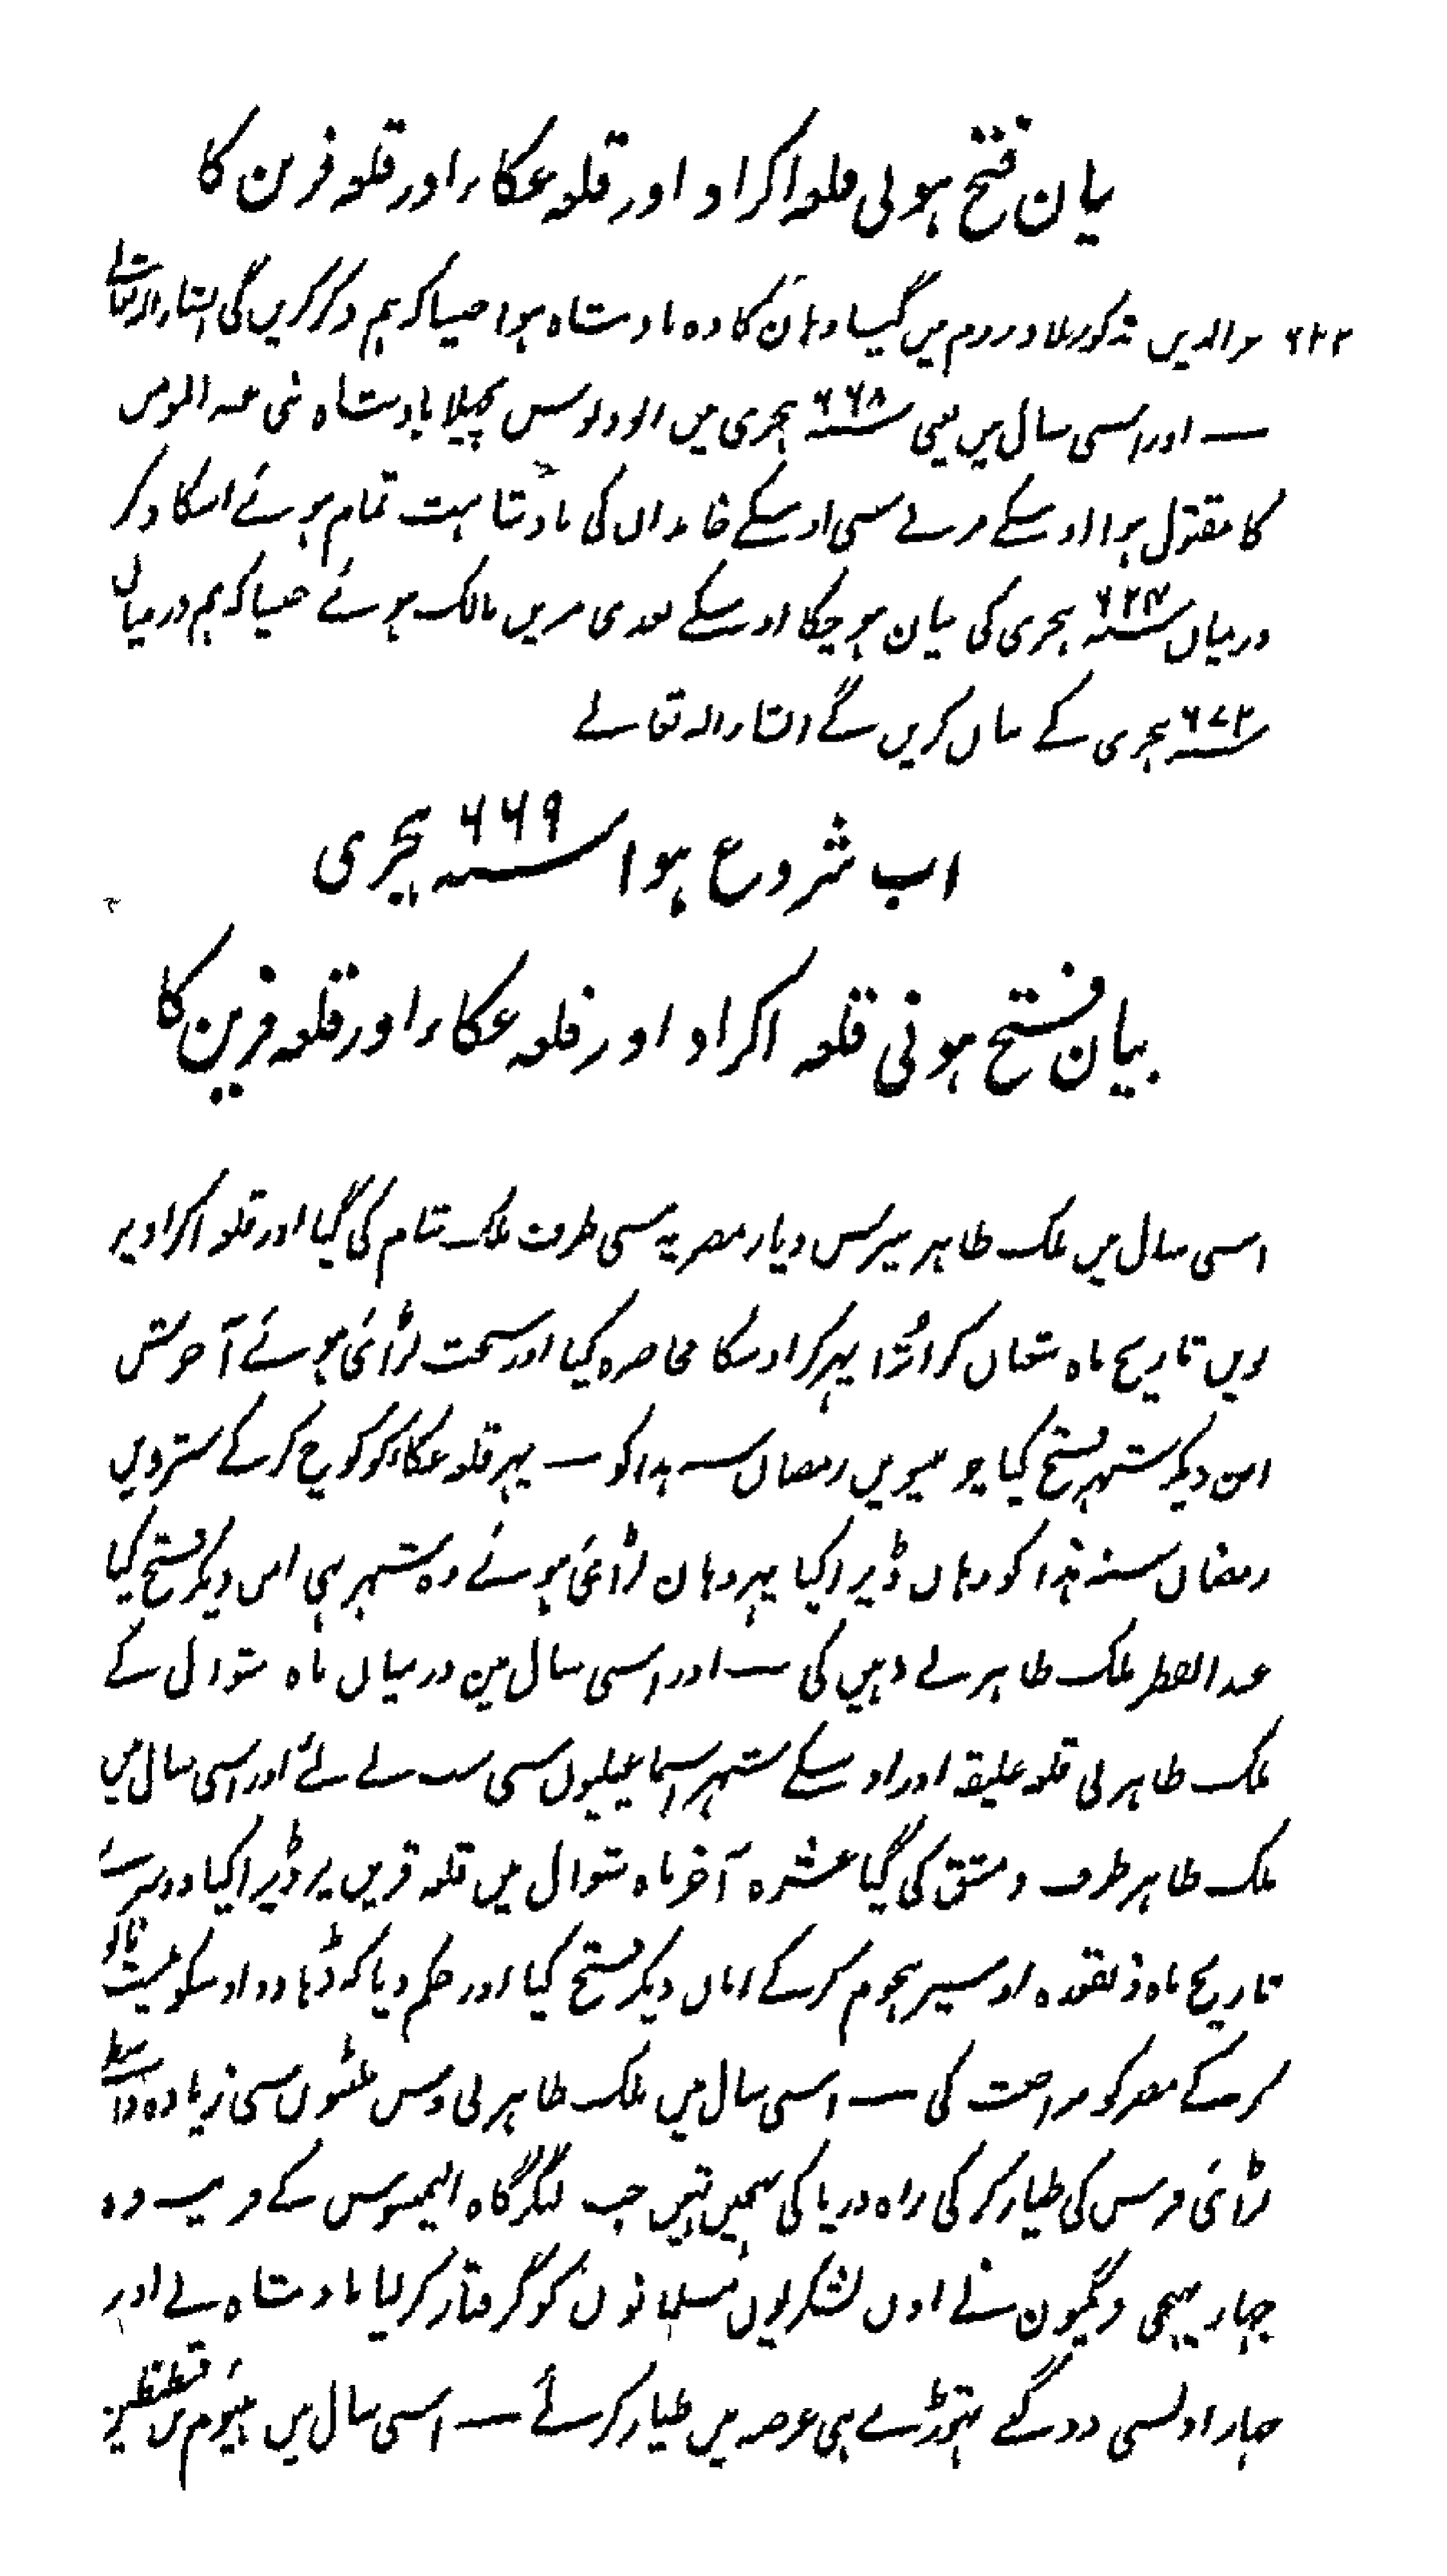 بیان فتح ہونی قلعہ اکراد اور قلعہ عکار اور قلعہ قرین کا
۶۲۲ عزالدین مذکور بلاد روم میں گیا وہان کا وہ بادشاہ ہوا جیسا کہ ہم ذکر کریں گی انشاءاللہ تعالے
— اور اسی سال میں یعنی سنہ ۶۶۸ ہجری میں ابو دبوس پچھلا بادشاہ بنی عبد المومن
کا مقتول ہوا اوسکے مرنے سی اوسکے خاندان کی بادشاہت تمام ہوئے اسکا ذکر
درمیان سنہ ۶۲۴ ہجری کی بیان ہو چکا اوسکے بعد بنی مرین مالک ہوئے جیسا کہ ہم درمیان
سنہ ۶۷۲ ہجری کے بیان کریں گے انشاءاللہ تعالے
اب شروع ہوا سنہ ۶۶۹ ہجری
بیان فتح ہونی قلعہ اکراد اور قلعہ عکار اور قلعہ قرین کا
اسی سال میں ملک ظاہر بیبرس دیار مصریہ سی طرف ملک شام کی گیا اور قلعہ اکراد پر
نویں تاریخ ماہ شعبان کو اترا پہر کر اوسکا محاصرہ کیا اور سخت لڑائی ہوئے آخرش
امن دیکر شہر فتح کیا چوبیسویں رمضان سنہ ہذا کو — پہر قلعہ عکار کو کوچ کر کے سترویں
رمضان سنہ ہذا کو وہاں ڈیرا کیا پہر وہان لڑائی ہوئے وہ شہر بہی امن دیکر فتح کیا
عید الفطر ملک ظاہر نے وہیں کی — اور اسی سال مین درمیان ماہ شوال کے
ملک ظاہر نی قلعہ علیقہ اور اوسکے شہر اسماعیلیوں سی سب لے لئے اور اسی سال میں
ملک ظاہر طرف دمشق کی گیا عشرہ آخر ماہ شوال میں قلعہ قرین پر ڈیرا کیا دوسرے
تاریخ ماہ ذلقعدہ اوسپر ہجوم کر کے امان دیکر فتح کیا اور حکم دیا کہ ڈہا دو اوسکو
کر کے مصر کو مراجعت کی — اسی سال میں ملک ظاہر نی دس سی زیادہ واسطے
لڑائی قبرس کی طیار کر کی راہ دریا کی بہیجیں تہیں جب لنگرگاہ کے قریب وہ
جہاز پہنچی فرنگیون نے اون لشکریوں مسلمانوں کو گرفتار کر لیا بادشاہ نے اور
جہاز اونسی دوگنے تہوڑے ہی عرصہ میں طیار کرائے — اسی سال میں قسطنطین